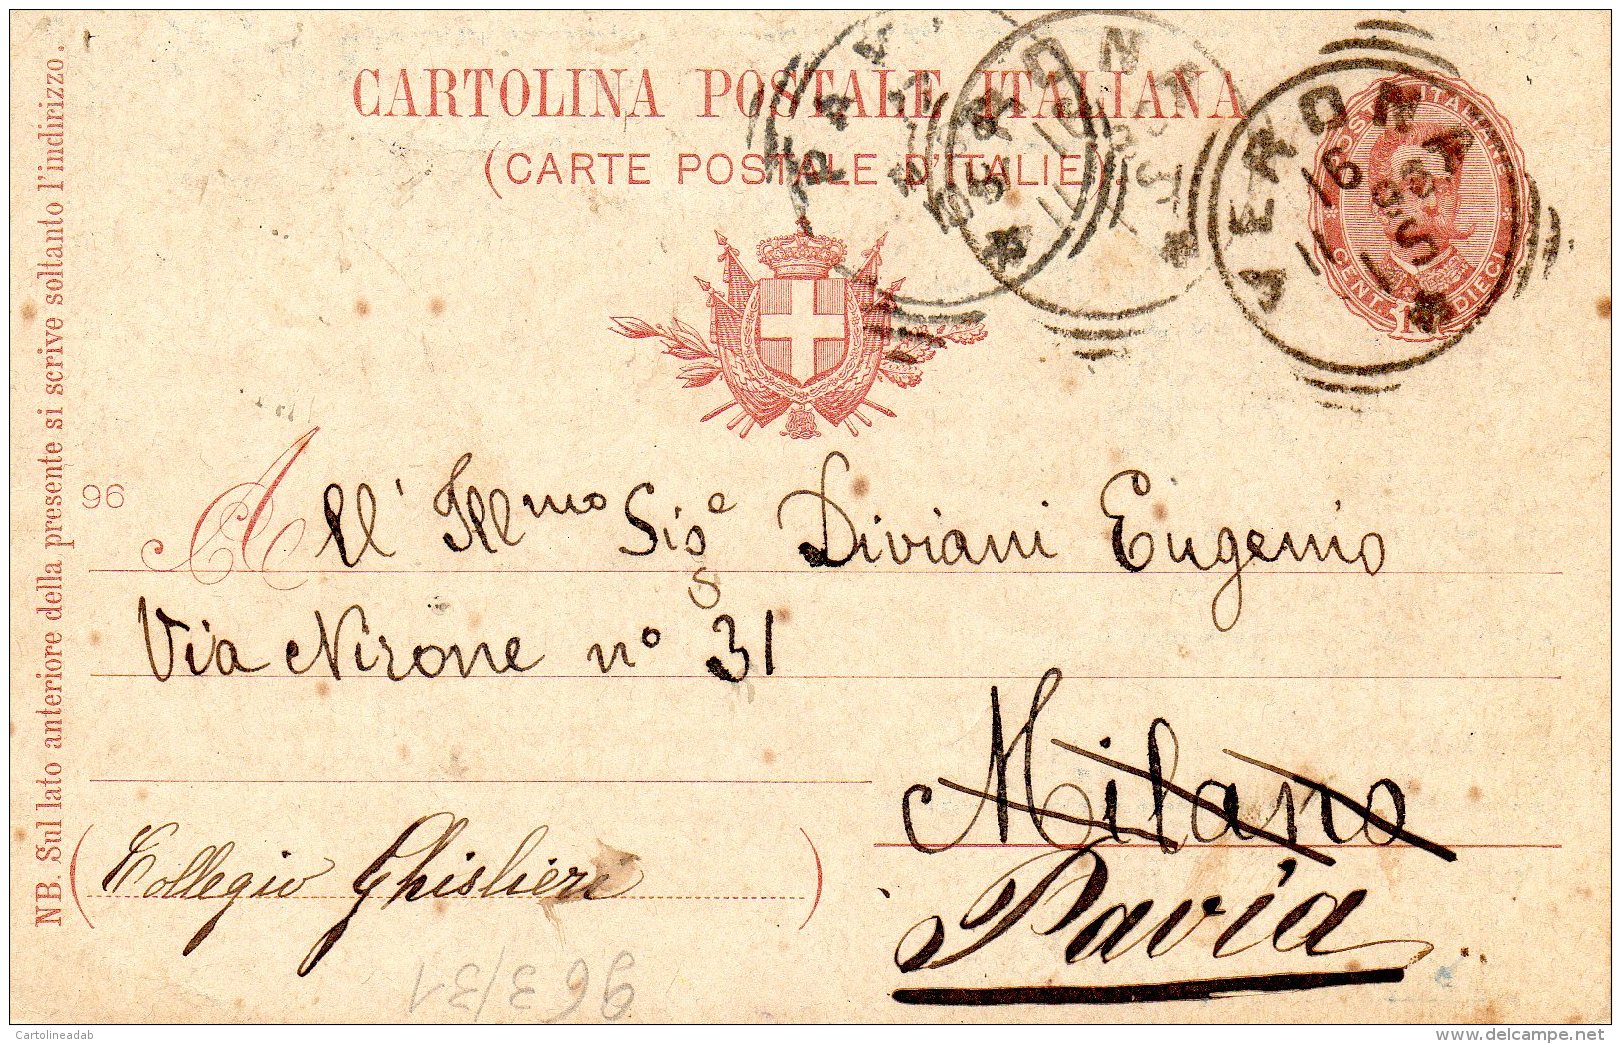 CARTOLINA POSTALE ITALIANA
(CARTE POSTALE D'ITALIE).
POSTE ITALIANE
CENT. 10 DIECI
VERONA
16
96
All' Ill.mo Sig.e Diviani Eugenio
Via Nirone n° 31
Milano
Pavia
(Collegio Ghislieri)
NB. Sul lato anteriore della presente si scrive soltanto l'indirizzo.
963/31
Cartolineadab
www.delcampe.net